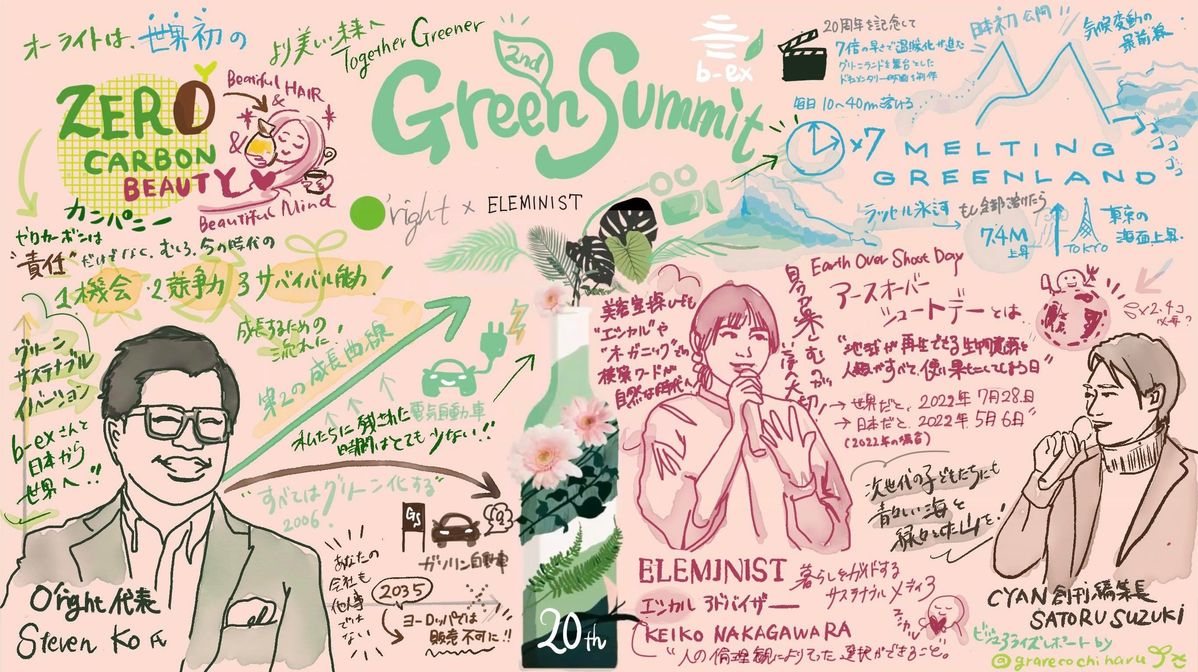 オーライトは、世界初の
ZERO
CARBON
BEAUTY
カンパニー
Beautiful HAIR
&
&
Beautiful Mind
より美しい未来へ
Together Greener
2nd
Green Summit
b-ex
O'right × ELEMINIST
20周年を記念して
7倍の早さで温暖化が進む
グリーンランドを舞台とした
ドキュメンタリー映画を制作
毎日10〜40m溶ける
日本初公開
気候変動の
最前線
×7
MELTING
GREENLAND
ラッセル氷河
もし全部溶けたら
7.4M
上昇
TOKYO
東京の
海面上昇
ゼロカーボンは
"責任"だけじゃなく、むしろ、今の時代の
1 機会 2 競争力 3 サバイバル能力!
グリーン
サステナブル
イノベーション
成長するための
流れに!
第2の成長曲線
電気自動車
私たちに残された
時間はとても少ない!!
b-exさんと
日本から
世界へ!!
"すべてはグリーン化する"
2006
GS
ガソリン自動車
あなたの
会社も
他事
ではない
2035
ヨーロッパでは
販売不可に!!
O'right 代表
Steven Ko 氏
20th
美容室探しでも
"エシカル"や
"オーガニック"での
検索ワードが
自然な時代へ
ELEMINIST
暮らしをガイドする
サステナブルメディア
エシカルアドバイザー
KEIKO NAKAGAWARA
"人の倫理観によりそった選択ができること。
エシカル
Earth Over Shoot Day
アースオーバー
シュートデーとは
"地球が再生できる生物資源を
人類がすべて使い果たしてしまう日"
→ 世界だと、2022年7月28日
→ 日本だと、2022年5月6日"
(2022年の場合)
次世代の子どもたちにも
青々しい海を
緑々とした山を!
CYAN 創刊編集長
SATORU SUZUKI
ビジュアライズレポート by
@grarecochiharu